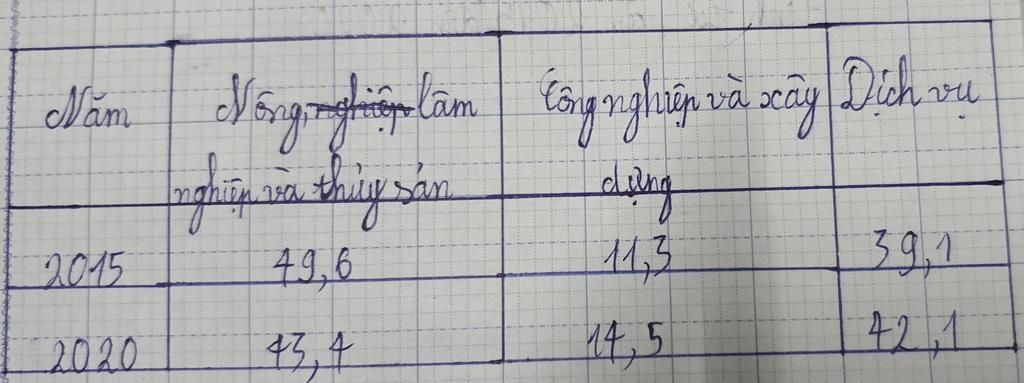 Năm Nông, nghiệp lâm Công nghiệp và xây Dịch vụ
nghiệp và thủy sản dựng
2015 49,6 11,3 39,1
2020 43,4 14,5 42,1